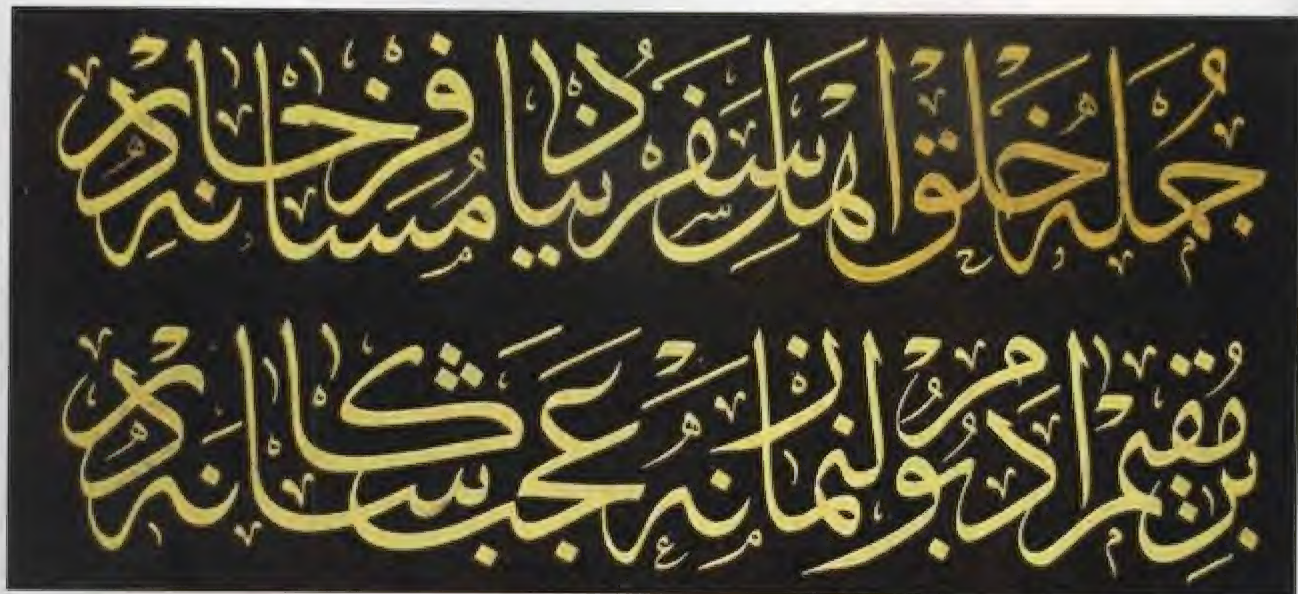 جمله خلق اهل سفر دنيا مسافرخانه در
بر مقيم ادم بولنماز نه عجب كاشانه در